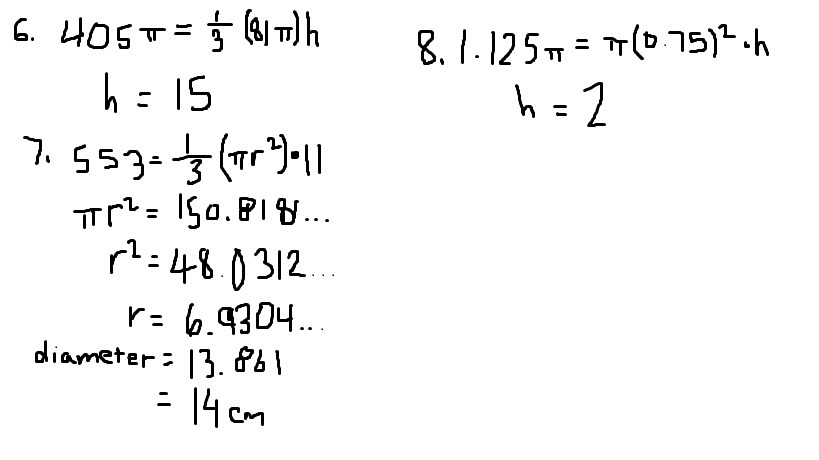 6. 405π = 1/3 (81π)h
h = 15
7. 553 = 1/3 (πr²)·11
πr² = 150.818...
r² = 48.0312...
r = 6.9304...
diameter = 13.861
= 14 cm
8. 1.125π = π(0.75)² · h
h = 2